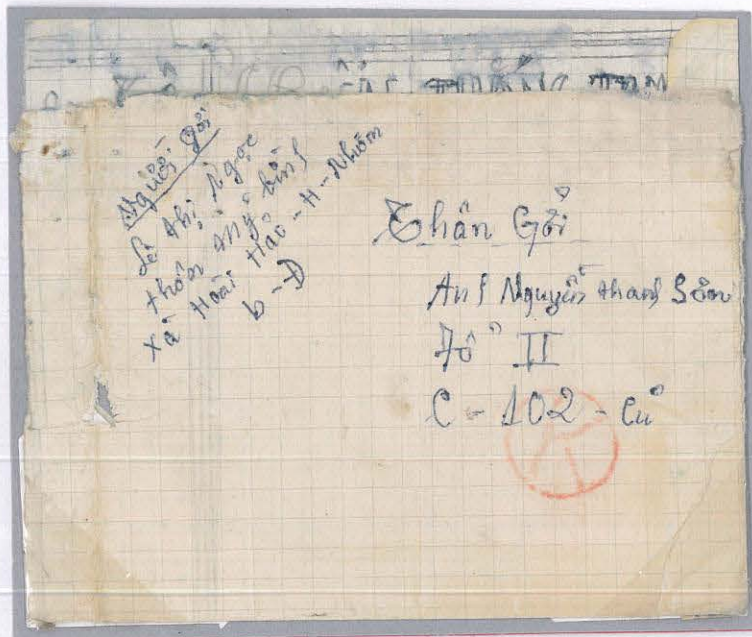 Người gởi
Lê thị Ngọc
thôn
xã Hoài Hảo - H - Nhơn
b - Đ
Thân Gởi
Anh Nguyễn thanh Sơn
Tổ II
C - 102 - Cũ